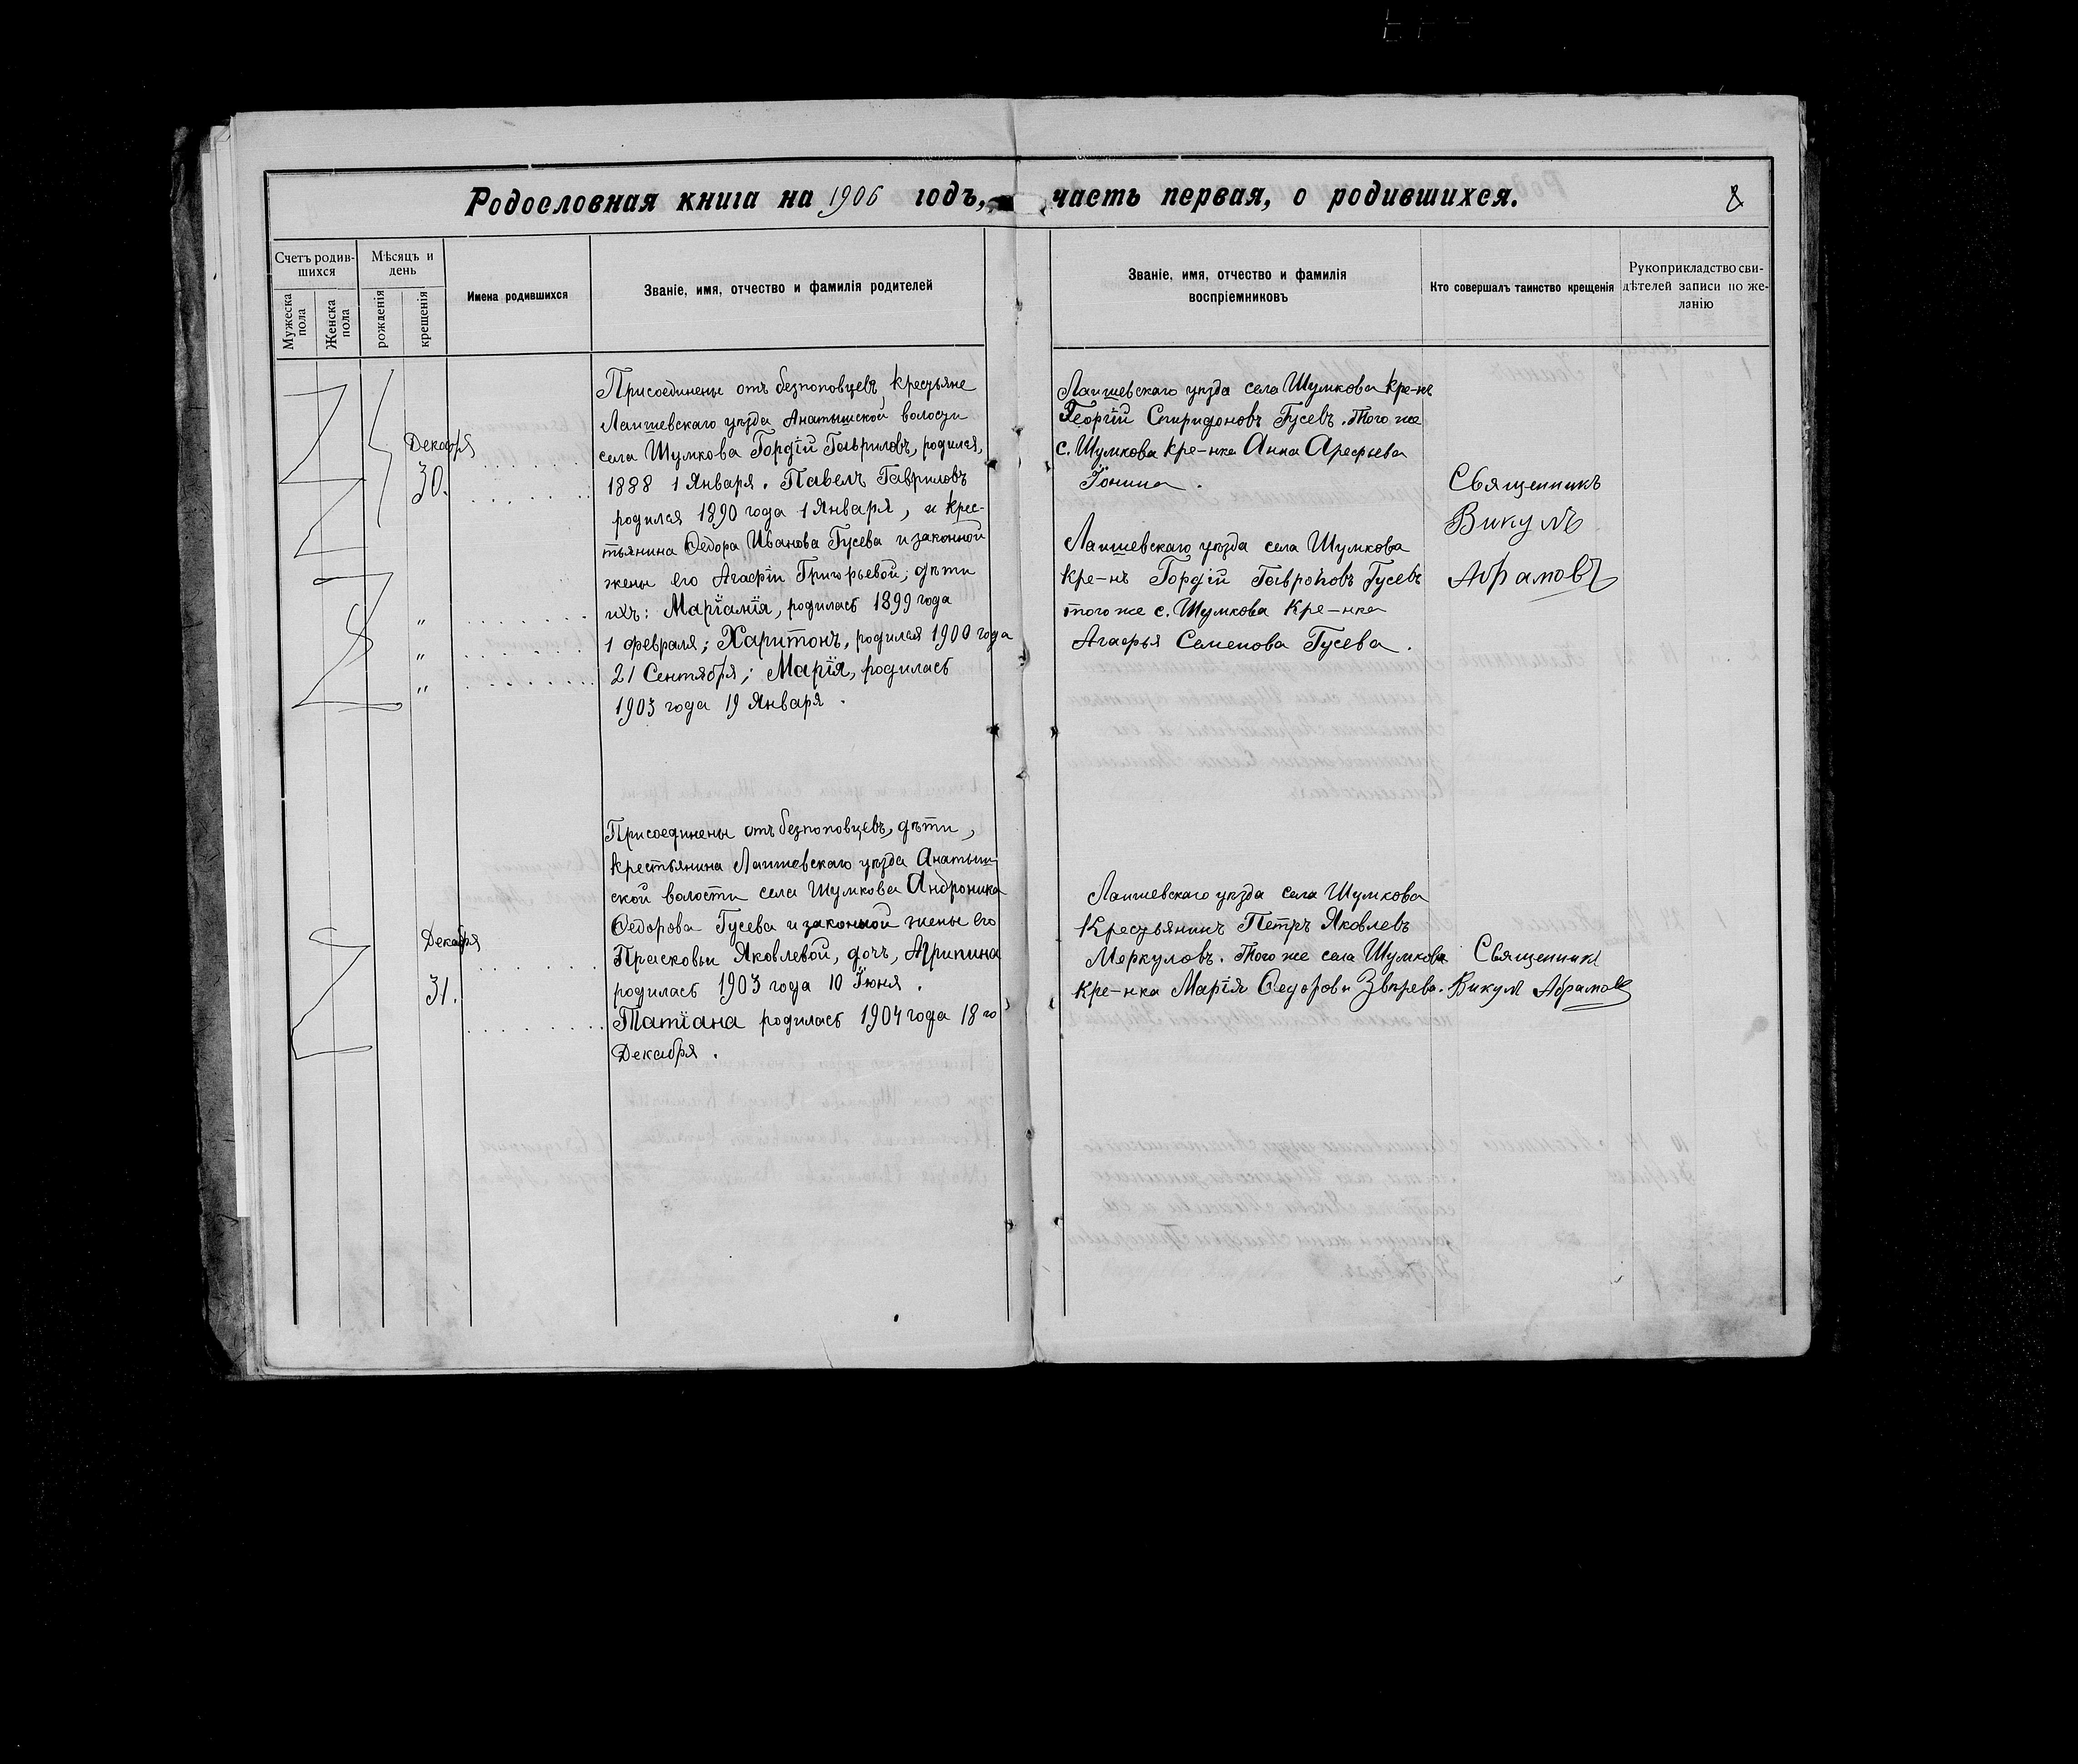 Родословная книга на 1906 годъ, часть первая, о родившихся.
8
Счетъ родив-
шихся
Мужеска
пола
Женска
пола
Мѣсяцъ и
день
рожденія
крещенія
Имена родившихся
Званіе, имя, отчество и фамилія родителей
Званіе, имя, отчество и фамилія
воспріемниковъ
Кто совершалъ таинство крещенія
Рукоприкладство сви-
дѣтелей записи по же-
ланію
Декабря
30.
Присоединены отъ безпоповцевъ, крестьяне
Лаишевскаго уѣзда Анатышской волости
села Шумкова Гордій Гавриловъ, родился,
1888 1 Января. Павелъ Гавриловъ
родился 1890 года 1 Января, и крес-
тьянина Ѳедора Иванова Гусева и законной
жены его Агафіи Григорьевой; дѣти
ихъ: Маріамія, родилась 1899 года
1 февраля; Харитонъ, родился 1900 года
21 Сентября; Марія, родилась
1903 года 19 Января.
"
"
"
Лаишевскаго уѣзда села Шумкова кре-нъ
Георгій Спиридоновъ Гусевъ. Того же
с. Шумкова кре-нка Анна Арефьева
Іонина.
Лаишевскаго уѣзда села Шумкова
кре-нъ Гордій Гавриловъ Гусевъ
того же с. Шумкова кре-нка
Агафья Семенова Гусева.
Священникъ
Викулъ
Абрамовъ
Декабря
31.
Присоединены отъ безпоповцевъ, дѣти,
крестьянина Лаишевскаго уѣзда Анатыш-
ской волости села Шумкова Андроника
Ѳедорова Гусева и законной жены его
Прасковьи Яковлевой, дочь, Агрипина
родилась 1903 года 10 Іюня.
Татіана родилась 1904 года 18 го
Декабря.
Лаишевскаго уѣзда села Шумкова
Крестьянинъ Петръ Яковлевъ
Меркуловъ. Того же села Шумкова
кре-нка Марія Ѳедорова Звѣрева.
Священникъ
Викулъ Абрамовъ